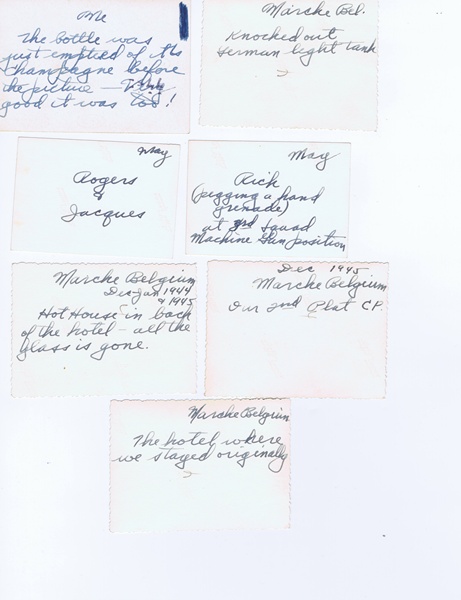 Me
The bottle was
just emptied of its
Champagne before
the picture —
good it was too!
Marche Bel.
Knocked out
German light tank
May
Rogers
&
Jacques
May
Rick
(pegging a hand
grenade)
at 3rd Squad
Machine Gun position
Marche Belgium
Dec-Jan 1944
& 1945
Hot House in back
of the hotel - all the
glass is gone.
Dec 1945
Marche Belgium
Our 2nd Plat CP.
Marche Belgium
The hotel where
we stayed originally